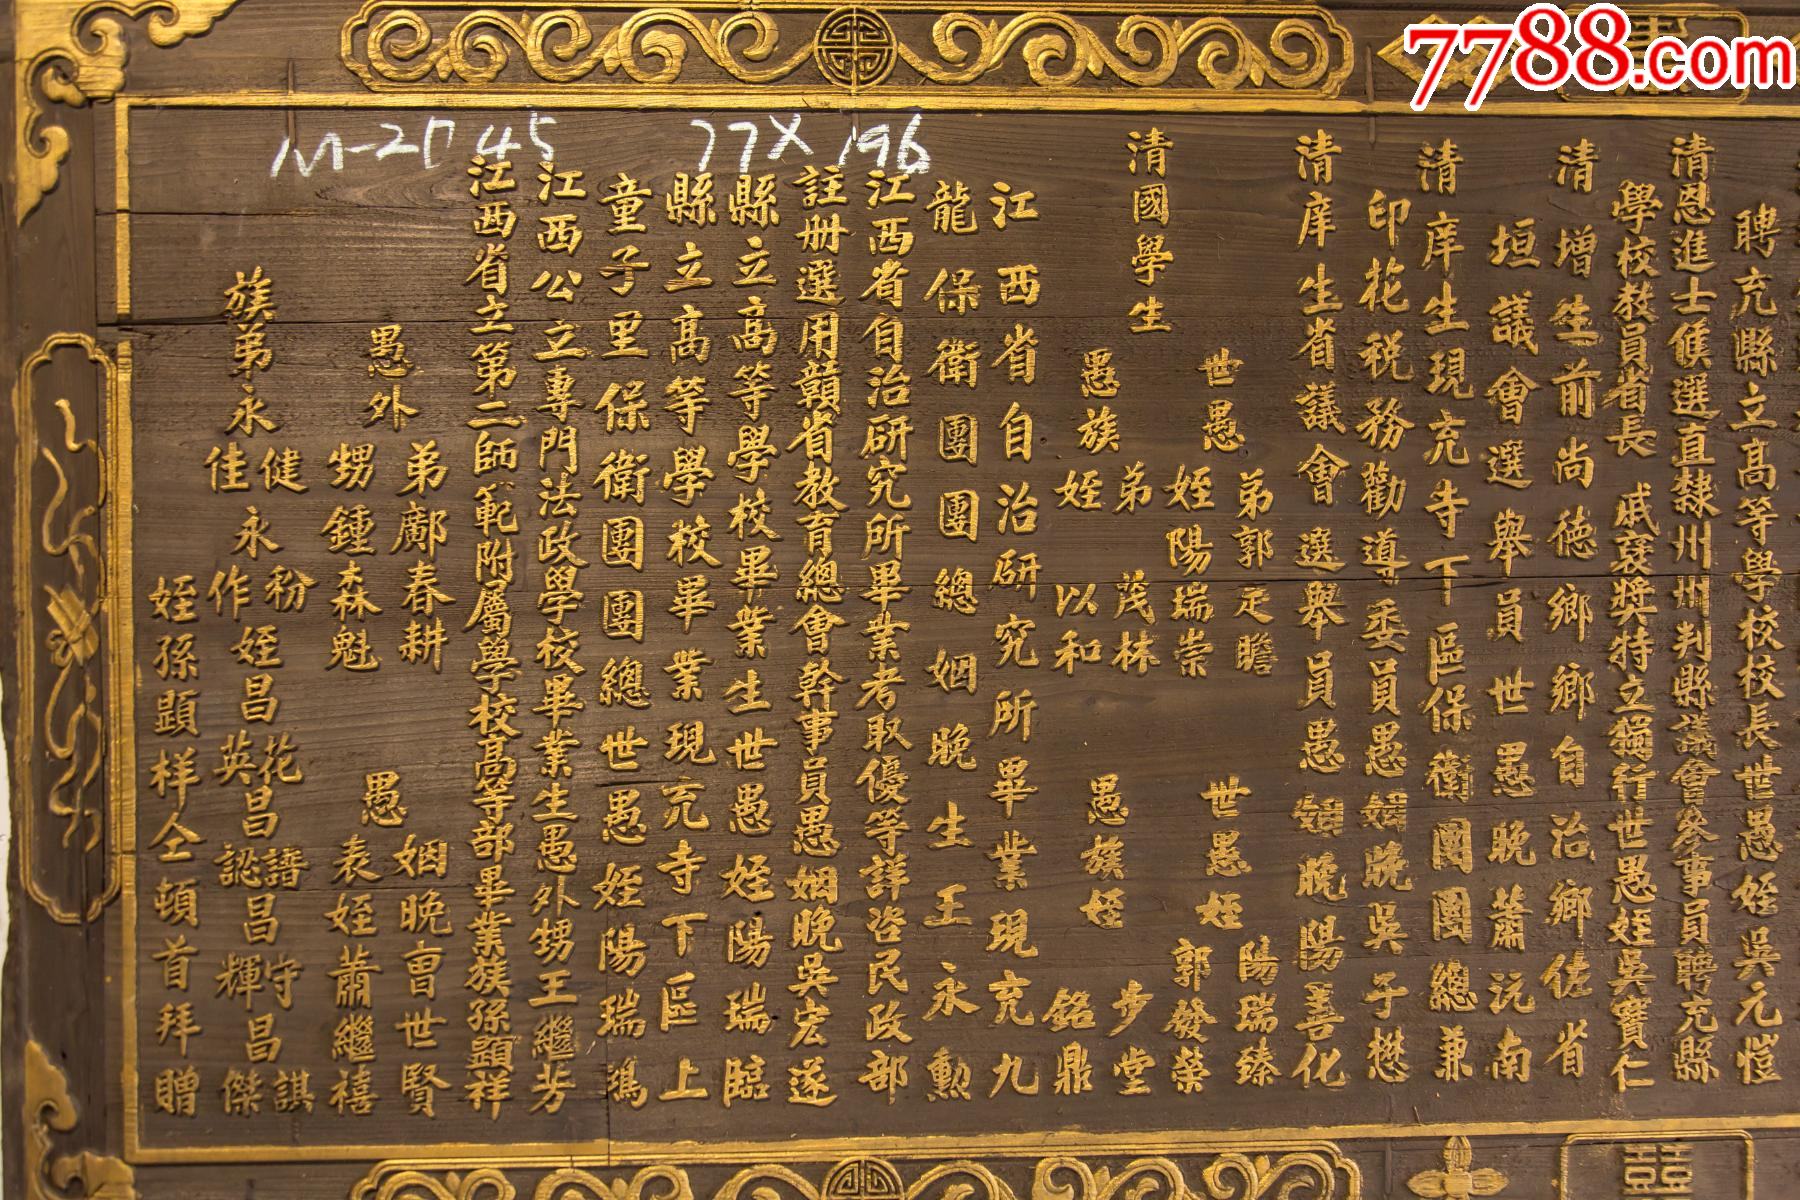 7788.com
M-2045 77X196
聘充縣立高等學校校長世愚姪吳元愷
清恩進士候選直隸州州判縣議會參事員聘充縣
學校教員省長 戚襃獎特立獨行世愚姪吳寶仁
清增生前尚德鄉鄉自治鄉佐省
垣議會選舉員世愚晚蕭沅南
清庠生現充寺下區保衛團團總兼
印花税務勸導委員愚姻晚吳子懋
清庠生省議會選舉員愚姻晚陽善化
世愚
弟郭疋瞻
姪陽瑞崇
世愚姪
陽瑞臻
郭發榮
清國學生
愚族
弟茂林
姪以和
愚族姪
步堂
銘鼎
江西省自治研究所畢業現充九
龍保衛團團總姻晚生王永勳
江西省自治研究所畢業考取優等詳咨民政部
註册選用贛省教育總會幹事員愚姻晚吳宏遂
縣立高等學校畢業生世愚姪陽瑞臨
縣立高等學校畢業現充寺下區上
童子里保衛團團總世愚姪陽瑞鴻
江西公立專門法政學校畢業生愚外甥王繼芳
江西省立第二師範附屬學校高等部畢業族孫顯祥
愚外
弟鄺春耕
甥鍾森魁
愚
姻晚曹世賢
表姪蕭繼禧
族弟永
健
佳
永
粉
作
姪昌
花
英
昌
譜
認
昌
守
輝
昌
諆
傑
姪孫顕样仝頓首拜贈
囍